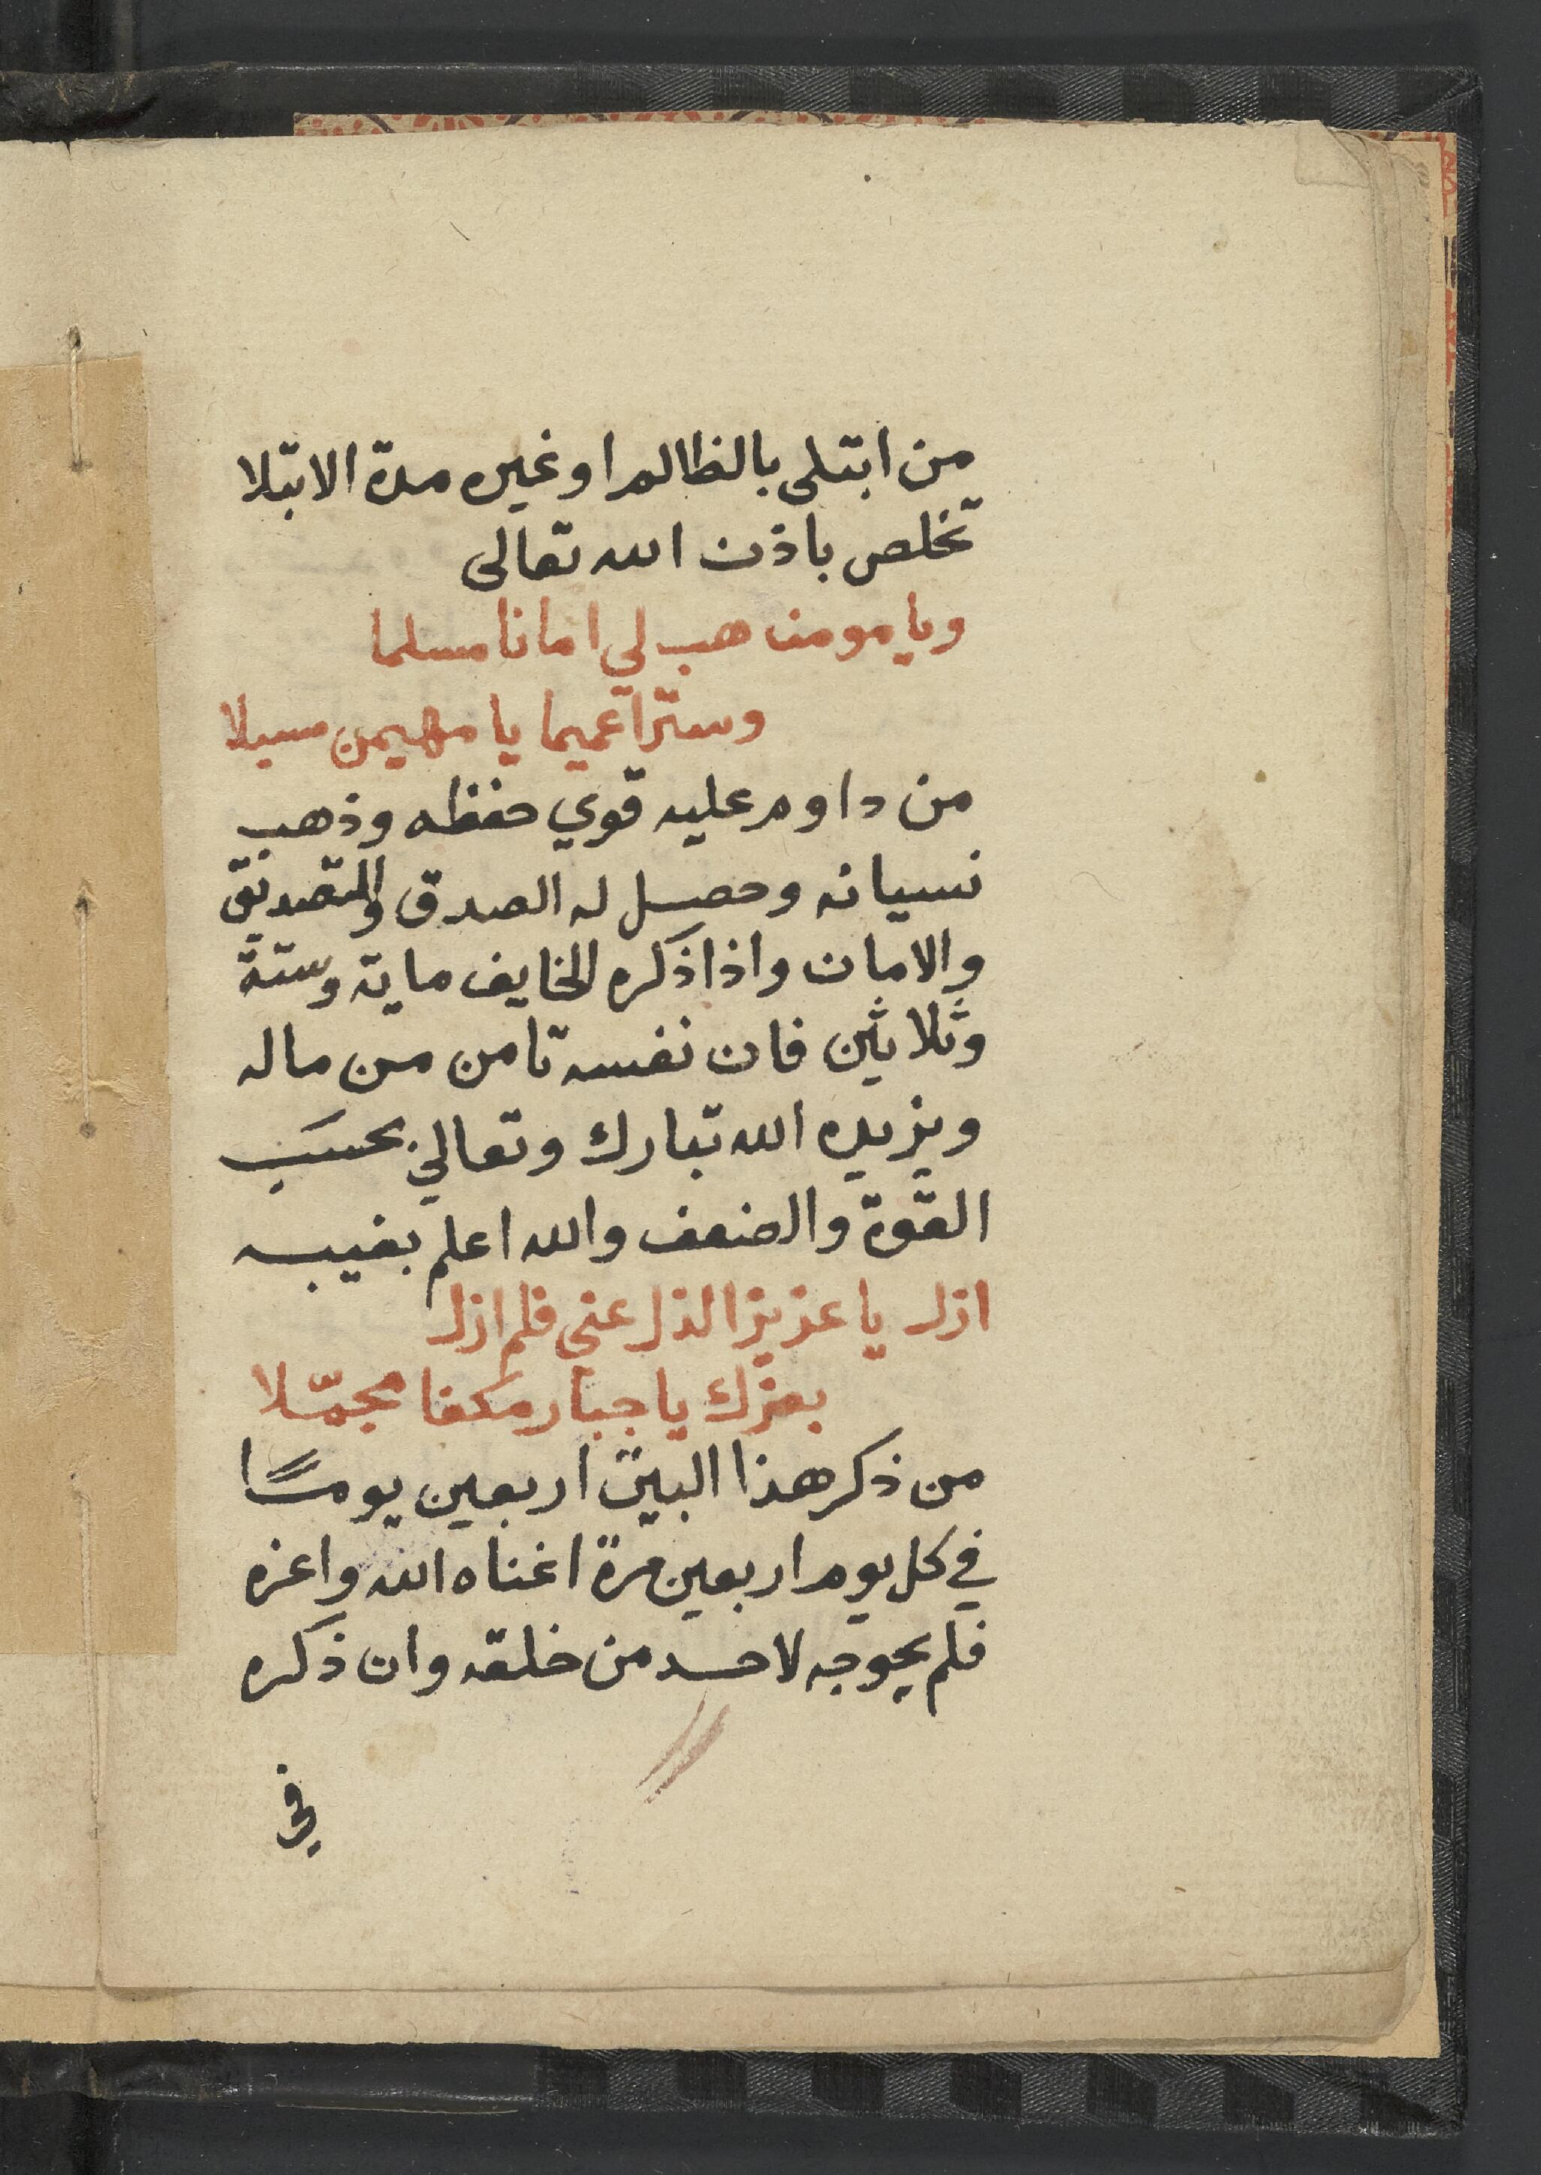 من ابتلى بالظالم او غيره مدة الابتلا
تخلص باذن الله تعالى
ويا مومن هب لي امانا مسلما
وسترا عميما يا مهيمن مسبلا
من داوم عليه قوي حفظه وذهب
نسيانه وحصل له الصدق والتصديق
والامان واذا ذكره الخايف ماية وستة
وثلاثين فان نفسه تامن من ماله
ويزيده الله تبارك وتعالي بحسب
القوة والضعف والله اعلم بغيبه
ازل يا عزيز الذل عني فلم ازل
بعزك يا جبار مكفا مجمّلا
من ذكر هذا البيت اربعين يومًا
في كل يوم اربعين مرة اغناه الله واعزه
فلم يحوجه لاحد من خلقه وان ذكره
في